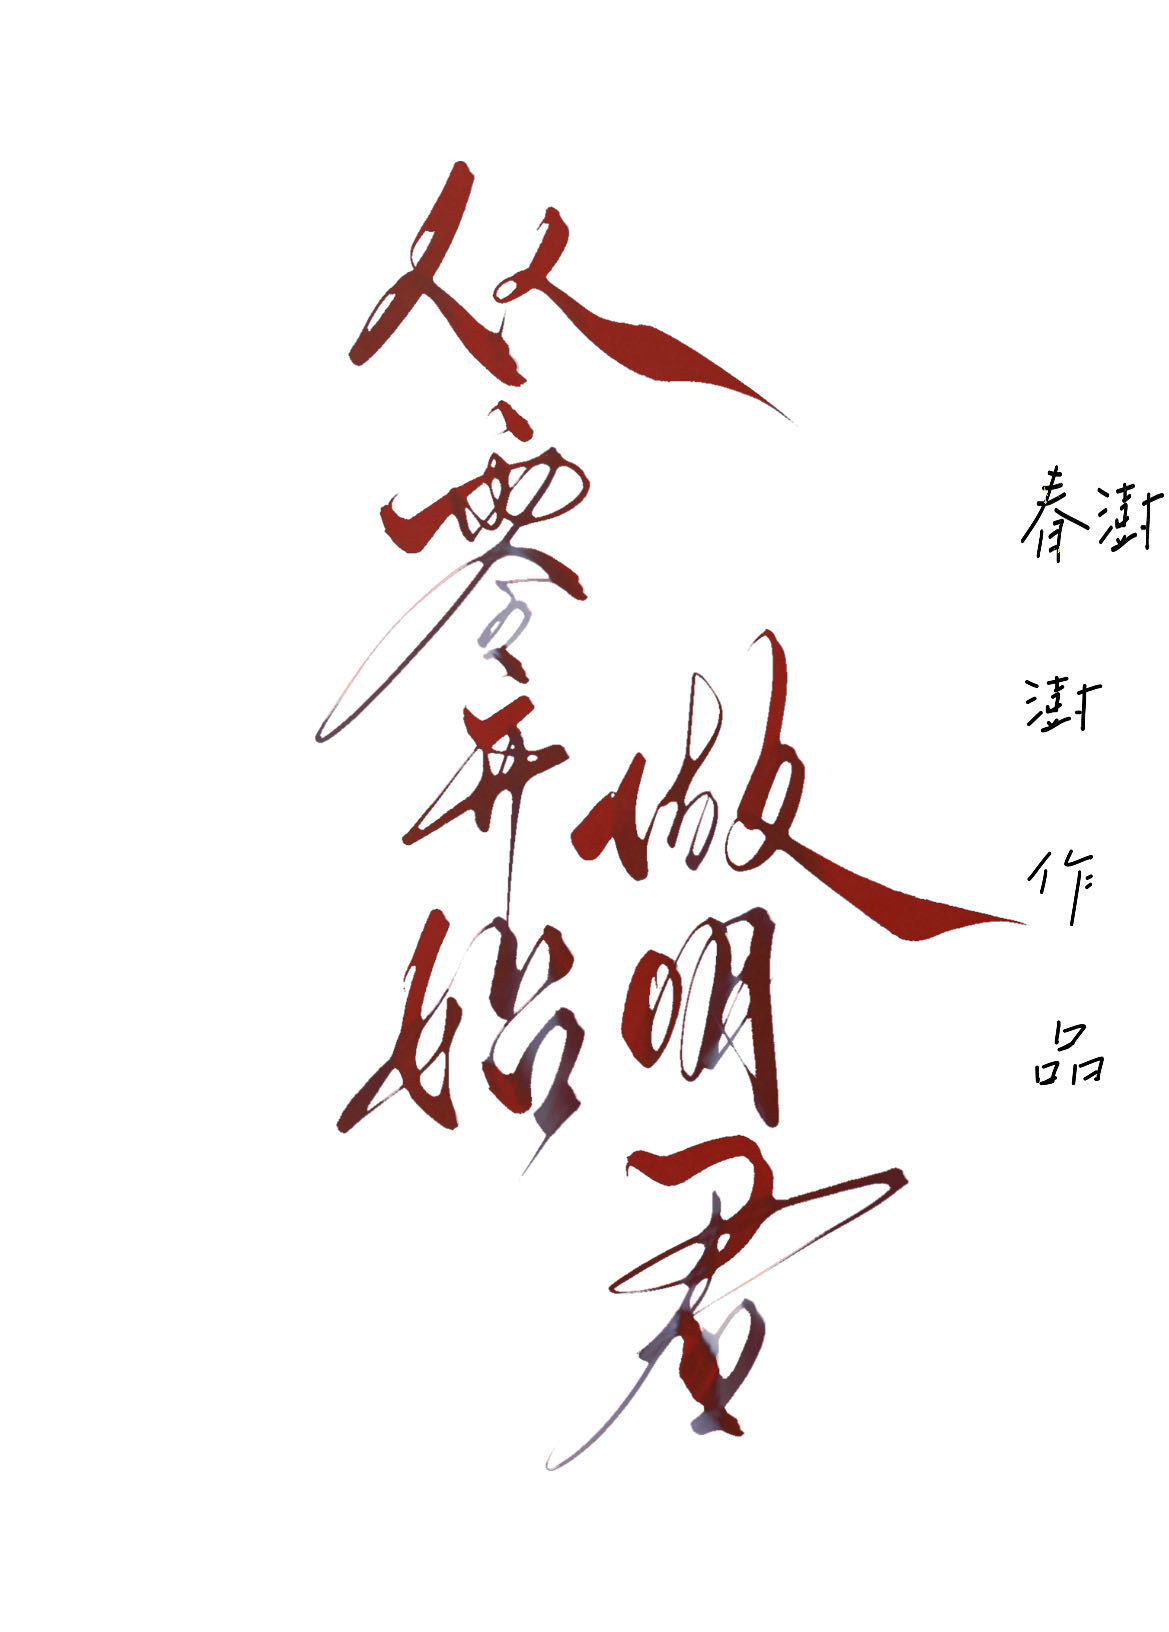 从零开始
做明君
春澍
澍
作
品